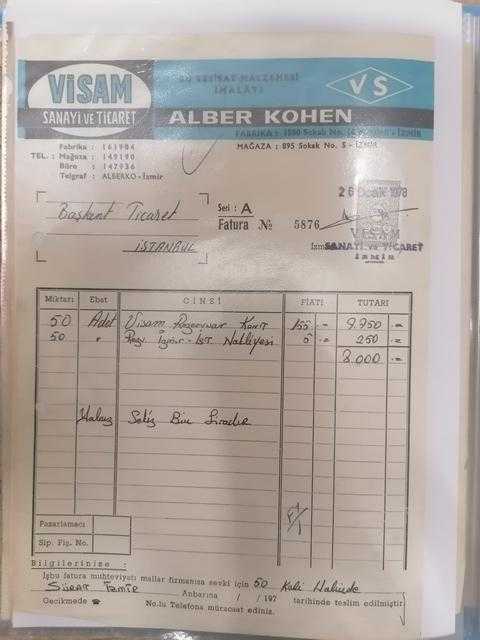 VİSAM
SANAYİ ve TİCARET
SU TESİSAT MALZEMESİ
İMALATI
VS
ALBER KOHEN
FABRİKA : 1590 Sokak No. İZMİR
MAĞAZA : 895 Sokak No. 5 - İZMİR
Fabrika : 161984
TEL. : Mağaza : 149190
Büro : 147936
Telgraf : ALBERKO - İzmir
26 Ocak 1978
Başkent Ticaret
İSTANBUL
Seri : A
Fatura No 5876
VİSAM
SANAYİ ve TİCARET
İZMİR
Miktarı Ebat CİNSİ FİATI TUTARI
50 Adet Visam 155 .= 9.750 .=
50 " İzmir - İST Nakliyesi 5 .= 250 .=
8.000 .=
Yalnız Sekiz Bin Liradır
F/1
Pazarlamacı
Sip. Fiş. No.
Bilgilerinize :
İşbu fatura muhteviyatı mallar firmanıza sevki için 50 Koli Halinde
SÜRAT İzmir Anbarına / / 197 tarihinde teslim edilmiştir.
Gecikmede ☎ No.lu Telefona müracaat ediniz.